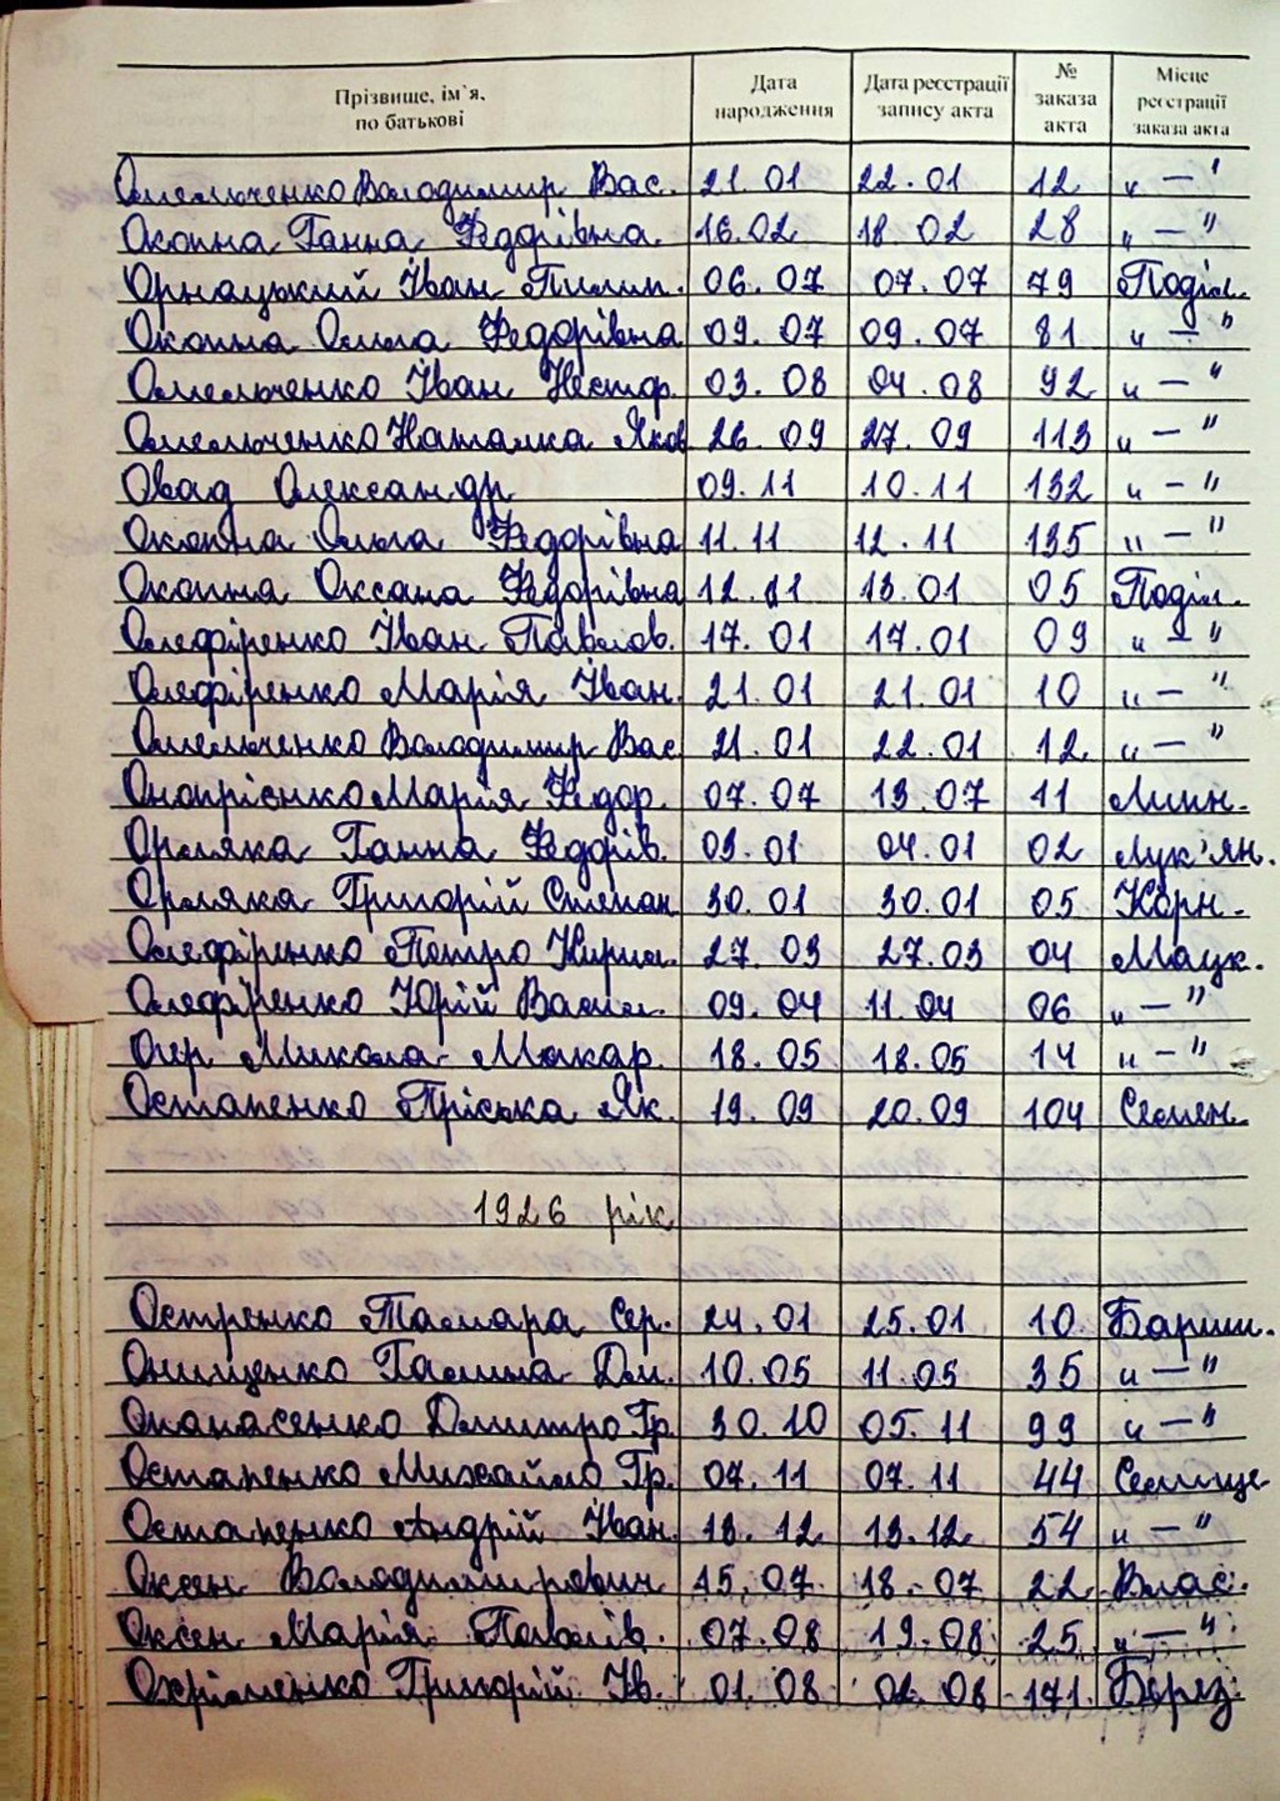 Прізвище, ім`я, по батькові | Дата народження | Дата реєстрації запису акта | № заказа акта | Місце реєстрації заказа акта
Омельченко Володимир Вас. 21.01 22.01 12 „ — "
Окопна Ганна Федорівна 16.02 18.02 28 „ — "
Орнацький Іван Пилип. 06.07 07.07 79 Поділ.
Окопна Ольга Федорівна 09.07 09.07 81 „ — "
Омельченко Іван Нестор. 03.08 04.08 92 „ — "
Омельченко Наталка Яков 26.09 27.09 113 „ — "
Овад Олександр 09.11 10.11 132 „ — "
Окопна Ольга Федорівна 11.11 12.11 135 „ — "
Окопна Оксана Федорівна 12.01 13.01 05 Поділ.
Олефіренко Іван Павлов. 17.01 17.01 09 „ — "
Олефіренко Марія Іван. 21.01 21.01 10 „ — "
Омельченко Володимир Вас 21.01 22.01 12 „ — "
Онопрієнко Марія Федор. 07.07 13.07 11 Лини.
Орляка Ганна Федорів. 03.01 04.01 02 Лук'ян.
Орляка Григорій Степан 30.01 30.01 05 Корн.
Олефіренко Петро Кирил. 27.03 27.03 04 Мацк.
Олефіренко Юрій Васил. 09.04 11.04 06 „ — "
Микола Макар. 18.05 18.05 14 „ — "
Остапенко Пріська Як. 19.09 20.09 104 Семен.
1926 рік
Остренко Тамара Сер. 24.01 25.01 10 Бариш.
Онищенко Галина Дм. 10.05 11.05 35 „ — "
Опанасенко Дмитро Гр. 30.10 05.11 99 „ — "
Остапенко Михайло Гр. 07.11 07.11 44 Селище
Остапенко Андрій Іван. 13.12 13.12 54 „ — "
Оксен Володимирович 15.07 18.07 22 Влас.
Оксен Марія Павлів. 07.08 19.08 25 „ — "
Охріменко Григорій Ів. 01.08 02.08 171 Берез.